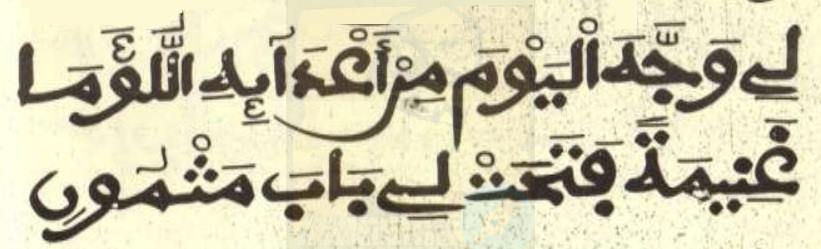 لِے وَجَّهَ اْليَوْمَ مِنْ أَعْدَآيِهِ اللُّؤَمَا
غَنِيمَةً فَتَحَتْ لِے بَابَ مَثْمُونِ